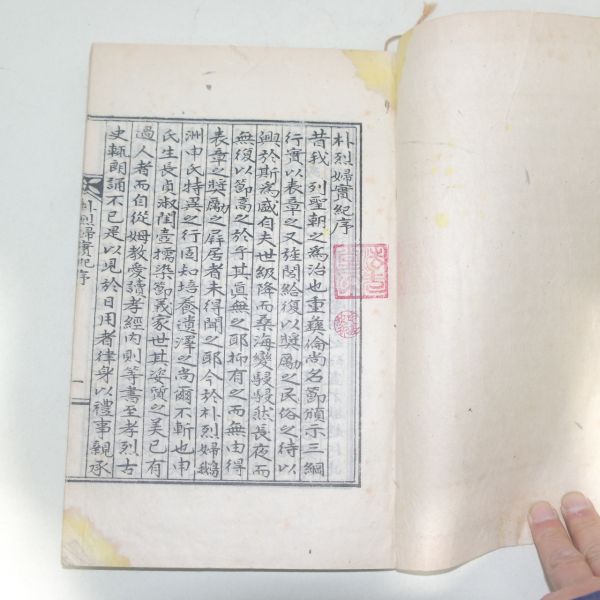 朴烈婦實紀序
昔我 列聖朝之為治也重彛倫尚名節頒示三綱
行實以表章之又旌閭給復以獎勵之民俗之待以
興於斯為盛自夫世級降而桑海變駸駸然長夜而
無復以節高之於乎其眞無之耶抑有之而無由得
表章之獎勵之屛居者未得聞之耶今於朴烈婦鵝
洲申氏特異之行固知培養遺澤之尚爾不斬也申
氏生長貞淑閨壼擩染節義家世其姿質之美已有
過人者而自從姆教愛讀孝經內則等書至孝烈古
史輒朗誦不已是以見於日用者律身以禮事親承
朴烈婦實紀序
一